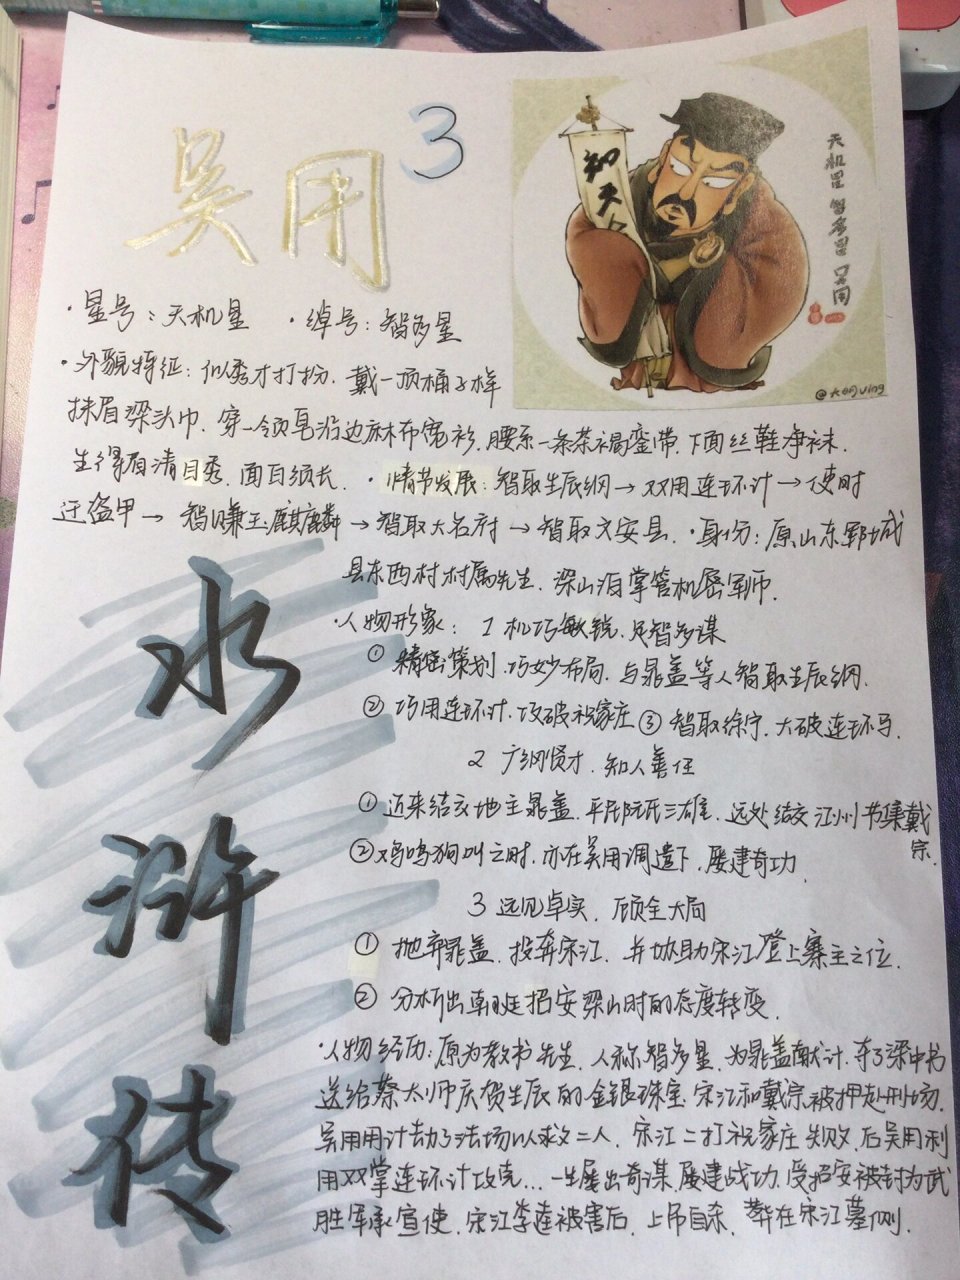 吴用
3
知天
天机星 智多星 吴用
@大明ving
·星号：天机星 ·绰号：智多星
·外貌特征：似秀才打扮，戴一顶桶子样
抹眉梁头巾，穿一领皂沿边麻布宽衫，腰系一条茶褐銮带，下面丝鞋净袜，
生得眉清目秀，面白须长。 ·情节发展：智取生辰纲→双用连环计→使时
迁盗甲→智赚玉麒麟→智取大名府→智取文安县。·身份：原山东郓城
县东西村村属先生，梁山泊掌管机密军师。
·人物形象：1 机巧敏锐，足智多谋
① 精密策划，巧妙布局，与晁盖等人智取生辰纲。
② 巧用连环计，攻破祝家庄 ③ 智取徐宁，大破连环马。
2 广纲贤才，知人善任
① 近来结交地主晁盖，平民阮氏三雄，远处结交江州节集戴
宗。
② 鸡鸣狗叫之时，亦在吴用调遣下，屡建奇功。
3 远见卓实，顾全大局
① 抛弃晁盖，投奔宋江，并协助宋江登上寨主之位。
② 分析出朝廷招安梁山时的态度转变。
·人物经历：原为教书先生，人称智多星，为晁盖献计，夺了梁中书
送给蔡太师庆贺生辰的金银珠宝，宋江和戴宗被押赴刑场，
吴用用计劫了法场以救二人，宋江二打祝家庄失败，后吴用利
用双掌连环计攻克…一生屡出奇谋，屡建战功，受招安被封为武
胜军承宣使，宋江李逵被害后，上吊自杀，葬在宋江墓侧。
水
浒
传